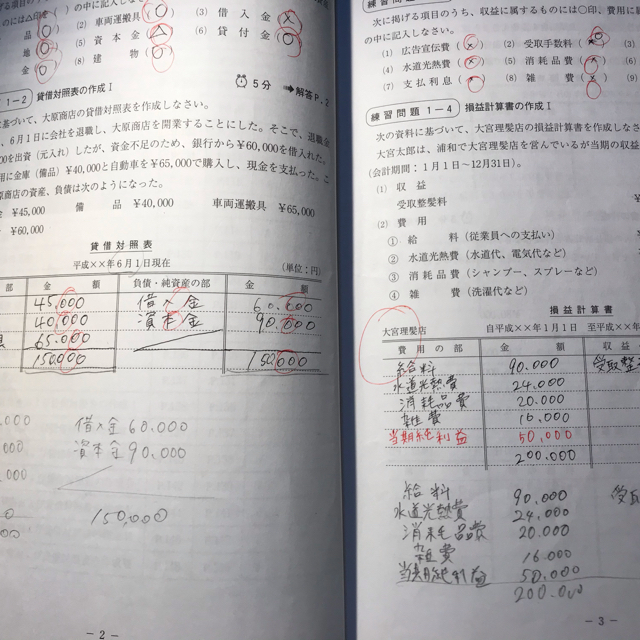 の中に記入し
品
(2) 車両運搬具
(3) 借入金
地
(5) 資本金
(6) 貸付金
金
(8) 建物
5分 解答P.2
1-2 貸借対照表の作成Ⅰ
基づいて、大原商店の貸借対照表を作成しなさい。
、6月1日に会社を退職し、大原商店を開業することにした。そこで、退職金
を出資(元入れ)したが、資金不足のため、銀行から¥60,000を借入れた。
用に金庫(備品)¥40,000と自動車を¥65,000で購入し、現金を支払った。こ
原商店の資産、負債は次のようになった。
金 ¥45,000 備品 ¥40,000 車両運搬具 ¥65,000
¥60,000
貸借対照表
平成××年6月1日現在 (単位:円)
部 金額 負債・純資産の部 金額
45,000 借入金 60,000
40,000 資本金 90,000
65,000
150,000 150,000
借入金 60,000
資本金 90,000
150,000
- 2 -
練習問題
次に掲げる項目のうち、収益に属するものには○印、費用に
の中に記入しなさい。
(1) 広告宣伝費 (×) (2) 受取手数料
(4) 水道光熱費 (×) (5) 消耗品費 (×) (6)
(7) 支払利息 (×) (8) 雑費 (×) (9)
練習問題 1-4 損益計算書の作成Ⅰ
次の資料に基づいて、大宮理髪店の損益計算書を作成しなさ
大宮太郎は、浦和で大宮理髪店を営んでいるが当期の収益
(会計期間:1月1日~12月31日)。
(1) 収益
受取整髪料
(2) 費用
① 給料(従業員への支払い)
② 水道光熱費(水道代、電気代など)
③ 消耗品費(シャンプー、スプレーなど)
④ 雑費(洗濯代など)
損益計算書
大宮理髪店 自平成××年1月1日 至平成××年
費用の部 金額 収益
給料 90,000 受取整
水道光熱費 24,000
消耗品費 20,000
雑費 16,000
当期純利益 50,000
200,000
給料 90,000 受取
水道光熱費 24,000
消耗品費 20,000
雑費 16,000
当期純利益 50,000
200,000
- 3 -